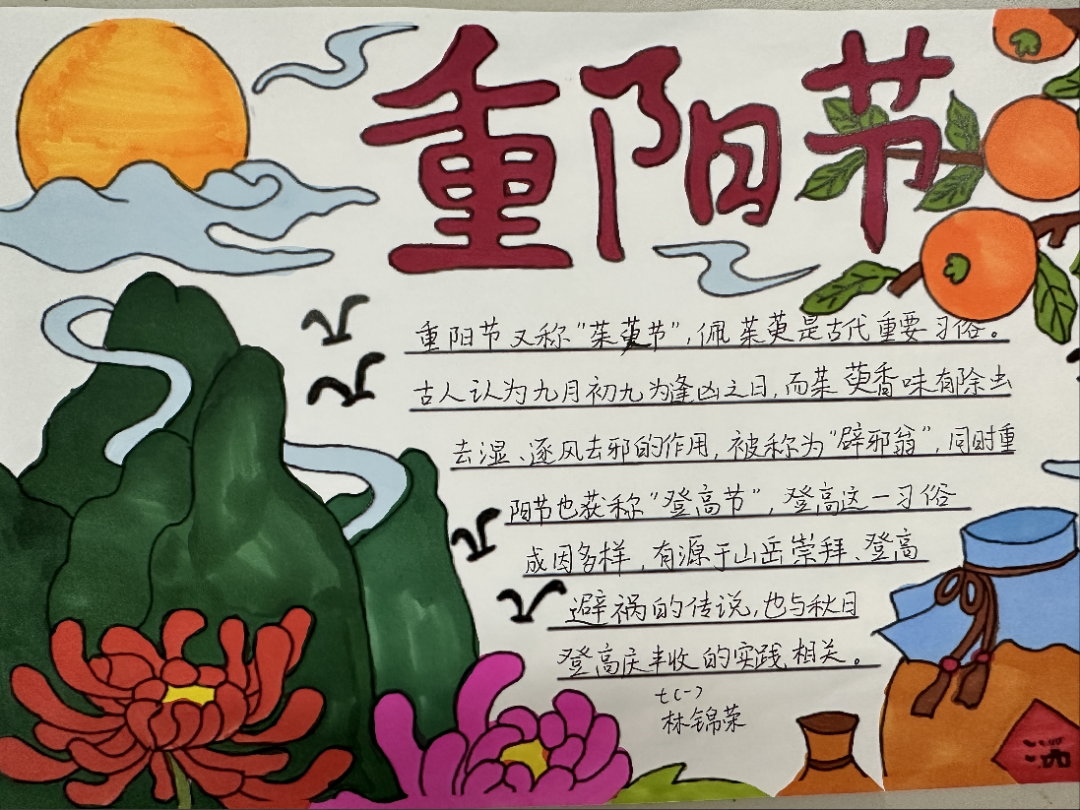 重阳节
重阳节又称“茱萸节”,佩茱萸是古代重要习俗。
古人认为九月初九为逢凶之日,而茱萸香味有除虫
去湿、逐风去邪的作用,被称为“辟邪翁”,同时重
阳节也获称“登高节”,登高这一习俗
成因多样,有源于山岳崇拜、登高
避祸的传说,也与秋日
登高庆丰收的实践相关。
七(一)
林锦荣
酒